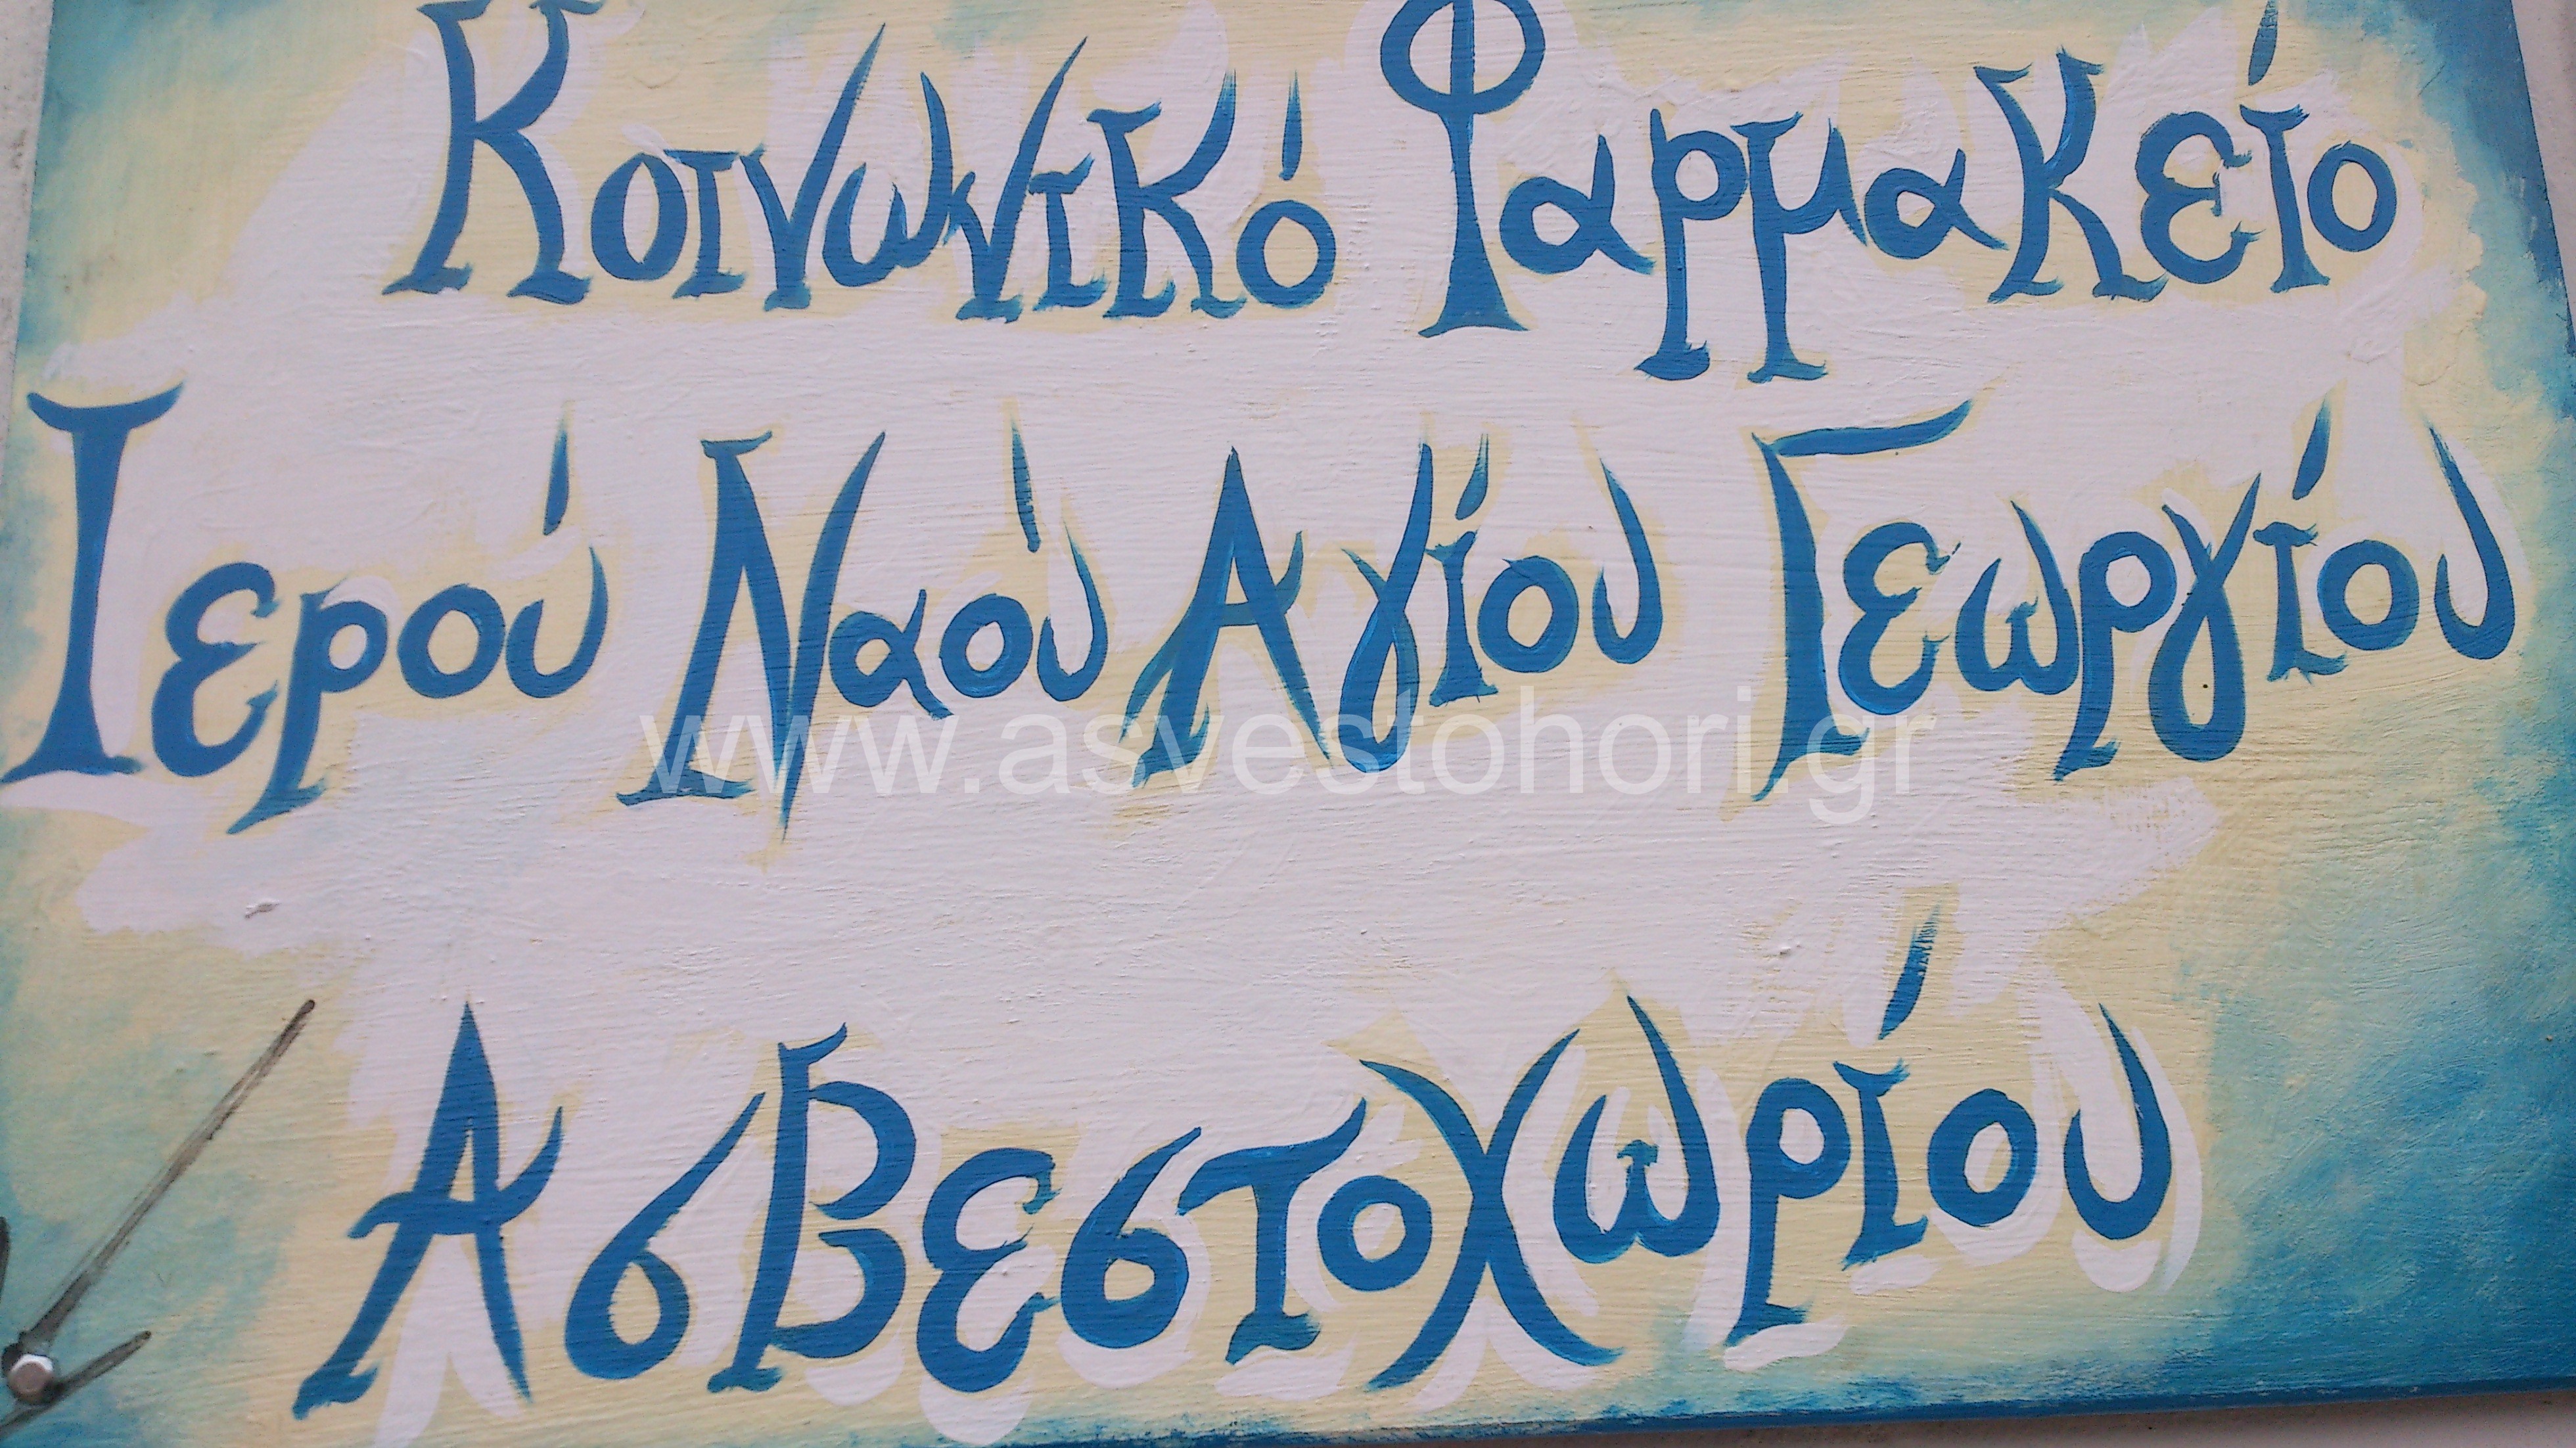 Κοινωνικό Φαρμακείο
Ιερού Ναού Αγίου Γεωργίου
www.asvestohori.gr
Ασβεστοχωρίου